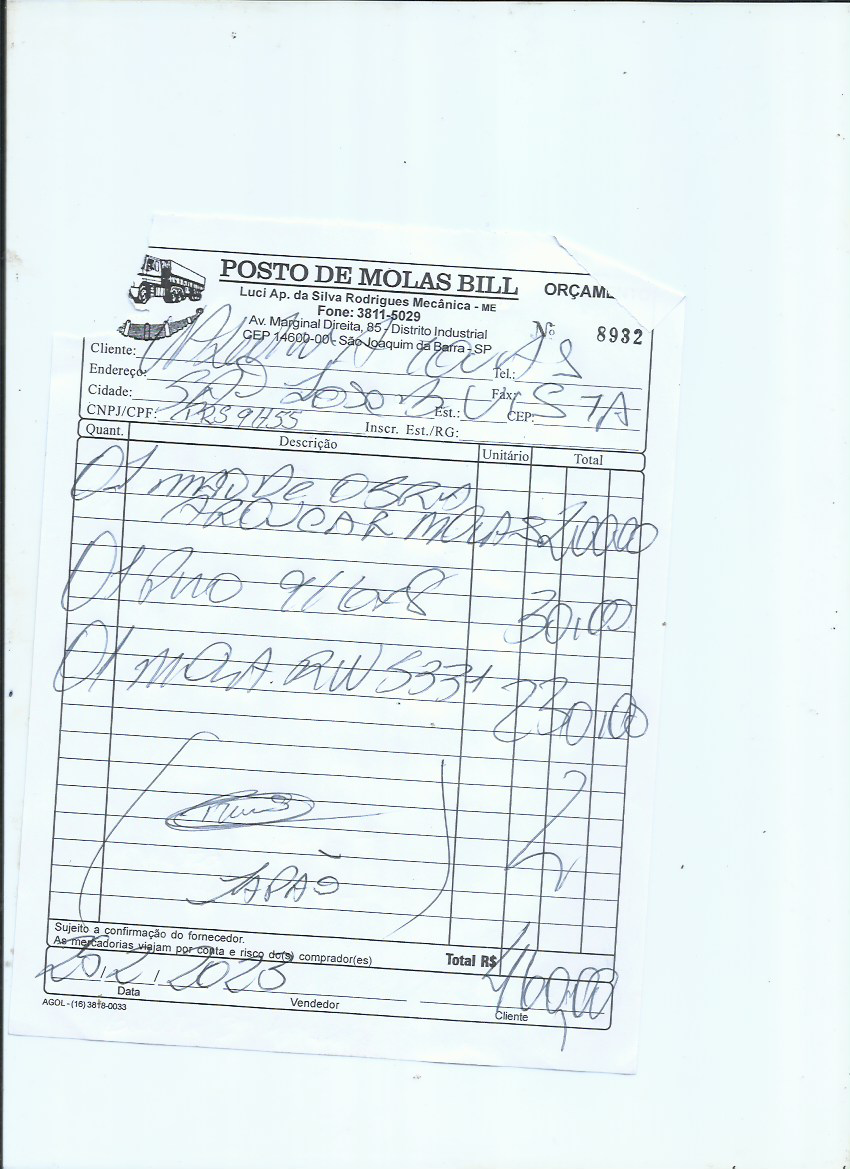 POSTO DE MOLAS BILL
ORÇAME
Luci Ap. da Silva Rodrigues Mecânica - ME
Fone: 3811-5029
Av. Marginal Direita, 85 - Distrito Industrial
CEP 14600-00 - São Joaquim da Barra - SP
Nº 8932
Cliente: Tel.:
Endereço: Fax:
Cidade: Est.: CEP:
CNPJ/CPF: Inscr. Est./RG:
Quant. Descrição Unitário Total
01 MÃO De OBRA
TROCAR MOLAS 200,00
01 Pino 9/16x8 30,00
01 MOLA. RW 5331 230,00
JAPÃO
Sujeito a confirmação do fornecedor.
As mercadorias viajam por conta e risco do(s) comprador(es)
Total R$ 460,00
2023
Data Vendedor Cliente
AGOL - (16) 3818-0033